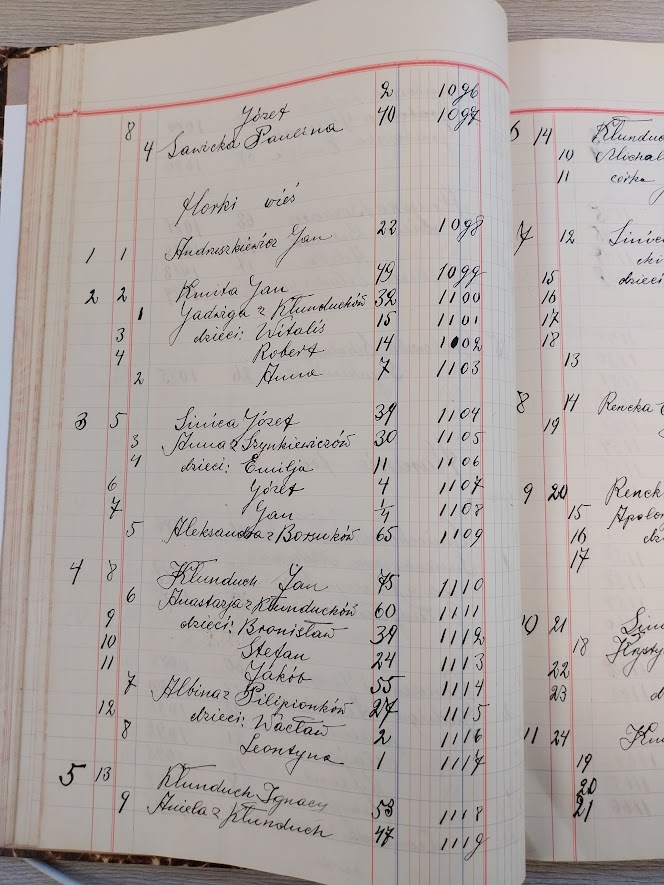 Józef 2 1096
8 4 Sawicka Paulina 40 1097
Horki wieś
1 1 Andruszkiewicz Jan 22 1098
2 2 Kmita Jan 49 1099
1 Jadwiga z Kłunduchów 32 1100
3 dzieci: Witalis 15 1101
4 Robert 14 1102
2 Anna 7 1103
3 5 Sińica Józef 39 1104
3 Anna z Szynkiewiczów 30 1105
4 dzieci: Emilja 11 1106
6 Józef 4 1107
7 Jan 1/4 1108
5 Aleksandra z Borsuków 65 1109
4 8 Kłunduch Jan 75 1110
6 Anastazja z Kłunduchów 60 1111
9 dzieci: Bronisław 39 1112
10 Stefan 24 1113
11 Jakób 55 1114
7 Albina z Pilipionków 27 1115
12 dzieci: Wacław 2 1116
8 Leontyna 1 1117
5 13 Kłunduch Ignacy 53 1118
9 Aniela z Kłunduch 47 1119
6 14 Kłunduc
10 Michal
11 córka
7 12
dzieci
15
16
17
18
13
8 14 Rencka
19
9 20 Renck
15 Apolon
16 dzi
17
10 21
18 Krysty
22
23 d
11 24
19
20
21